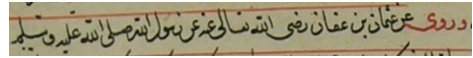 وروى عن عثمان بن عفان رضى الله تعالى عنه عن رسول الله صلى الله عليه وسلم